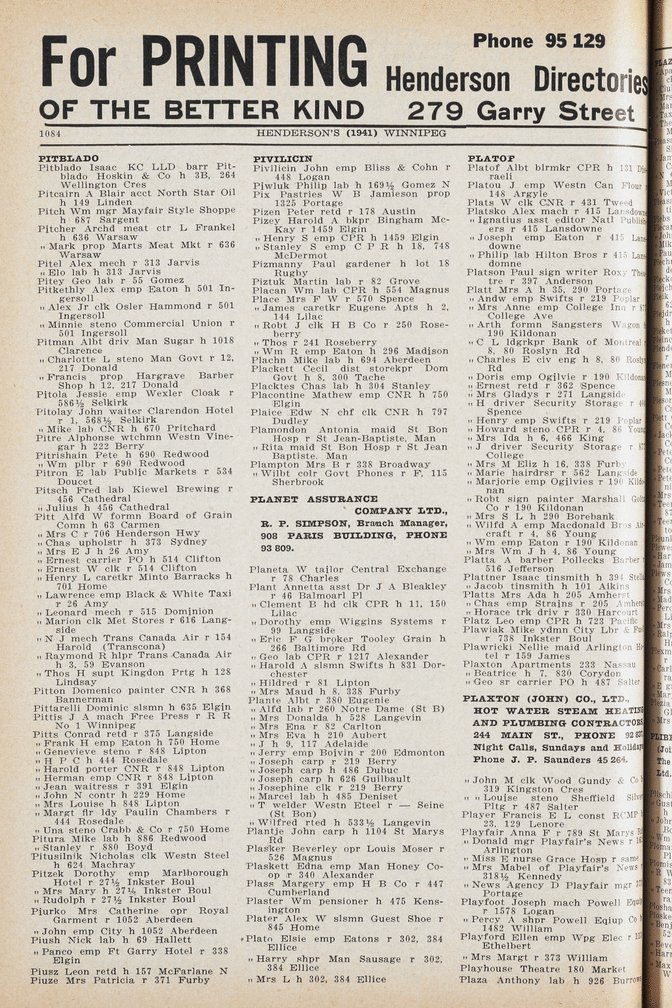 For PRINTING
OF THE BETTER KIND
Phone 95 129
Henderson Directories
279 Garry Street
1084
HENDERSON'S (1941) WINNIPEG
PITBLADO
Pitblado Isaac KC LLD barr Pit-
blado Hoskin & Co h 3B, 264
Wellington Cres
Pitcairn A Blair acct North Star Oil
h 149 Linden
Pitch Wm mgr Mayfair Style Shoppe
h 687 Sargent
Pitcher Archd meat ctr L Frankel
h 636 Warsaw
" Mark prop Marts Meat Mkt r 636
Warsaw
Pitel Alex mech r 313 Jarvis
" Elo lab h 313 Jarvis
Pitey Geo lab r 55 Gomez
Pitkethly Alex emp Eaton h 501 In-
gersoll
" Alex Jr clk Osler Hammond r 501
Ingersoll
" Minnie steno Commercial Union r
501 Ingersoll
Pitman Albt driv Man Sugar h 1018
Clarence
" Charlotte L steno Man Govt r 12,
217 Donald
" Francis prop Hargrave Barber
Shop h 12, 217 Donald
Pitola Jessie emp Wexler Cloak r
586½ Selkirk
Pitolay John waiter Clarendon Hotel
r 1, 568½ Selkirk
" Mike lab CNR h 670 Pritchard
Pitre Alphonse wtchmn Westn Vine-
gar h 222 Berry
Pitrishain Pete h 690 Redwood
" Wm plbr r 690 Redwood
Pitron E lab Public Markets r 534
Doucet
Pitsch Fred lab Kiewel Brewing r
456 Cathedral
" Julius h 456 Cathedral
Pitt Alfd W formn Board of Grain
Comn h 63 Carmen
" Mrs C r 706 Henderson Hwy
" Chas upholstr h 373 Sydney
" Mrs E J h 26 Amy
" Ernest carrier PO h 514 Clifton
" Ernest W clk r 514 Clifton
" Henry L caretkr Minto Barracks h
701 Home
" Lawrence emp Black & White Taxi
r 26 Amy
" Leonard mech r 515 Dominion
" Marion clk Met Stores r 616 Lang-
side
" N J mech Trans Canada Air r 154
Harold (Transcona)
" Raymond R hlpr Trans-Canada Air
h 3, 59 Evanson
" Thos H supt Kingdon Prtg h 128
Lindsay
Pitton Domenico painter CNR h 368
Bannerman
Pittarelli Dominic slsmn h 635 Elgin
Pittis J A mach Free Press r R R
No 1 Winnipeg
Pitts Conrad retd r 375 Langside
" Frank H emp Eaton h 750 Home
" Genevieve steno r 848 Lipton
" H P C h 444 Rosedale
" Harold porter CNR r 848 Lipton
" Herman emp CNR r 848 Lipton
" Jean waitress r 391 Elgin
" John N contr h 229 Home
" Mrs Louise h 848 Lipton
" Margt flr ldy Paulin Chambers r
444 Rosedale
" Una steno Crabb & Co r 750 Home
Pitura Mike lab h 886 Redwood
" Stanley r 880 Boyd
Pituslnik Nicholas clk Westn Steel
h 624 Machray
Pitzek Dorothy emp Marlborough
Hotel r 27½ Inkster Boul
" Mrs Mary h 27½ Inkster Boul
" Rudolph r 27½ Inkster Boul
Piurko Mrs Catherine opr Royal
Garment r 1052 Aberdeen
" John emp City h 1052 Aberdeen
Piush Nick lab h 69 Hallett
" Panco emp Ft Garry Hotel r 338
Elgin
Piusz Leon retd h 157 McFarlane N
Piuze Mrs Patricia r 371 Furby
PIVILICIN
Pivilicin John emp Bliss & Cohn r
448 Logan
Piwluk Philip lab h 169½ Gomez N
Pix Pastries W B Jamieson prop
1325 Portage
Pizen Peter retd r 178 Austin
Pizey Harold A bkpr Bingham Mc-
Kay r 1459 Elgin
" Henry S emp CPR h 1459 Elgin
" Stanley S emp C P R h 18, 748
McDermot
Pizmanny Paul gardener h lot 18
Rugby
Piztuk Martin lab r 82 Grove
Placan Wm lab CPR h 554 Magnus
Place Mrs F W r 570 Spence
" James caretkr Eugene Apts h 2,
144 Lilac
" Robt J clk H B Co r 250 Rose-
berry
" Thos r 241 Roseberry
" Wm R emp Eaton h 296 Madison
Plachn Mike lab h 694 Aberdeen
Plackett Cecil dist storekpr Dom
Govt h 8, 300 Tache
Placktes Chas lab h 304 Stanley
Placontine Mathew emp CNR h 750
Elgin
Plaice Edw N chf clk CNR h 797
Dudley
Plamondon Antonia maid St Bon
Hosp r St Jean-Baptiste, Man
" Rita maid St Bon Hosp r St Jean
Baptiste, Man
Plampton Mrs B r 338 Broadway
" Wilbt colr Govt Phones r F, 115
Sherbrook
PLANET ASSURANCE
COMPANY LTD.,
R. P. SIMPSON, Branch Manager,
908 PARIS BUILDING, PHONE
93 809.
Planeta W tailor Central Exchange
r 78 Charles
Plant Annetta asst Dr J A Bleakley
r 46 Balmoarl Pl
" Clement B hd clk CPR h 11, 150
Lilac
" Dorothy emp Wiggins Systems r
99 Langside
" Eric F G broker Tooley Grain h
266 Baltimore Rd
" Geo lab CPR r 1217 Alexander
" Harold A slsmn Swifts h 831 Dor-
chester
" Hildred r 81 Lipton
" Mrs Maud h 8, 338 Furby
Plante Albt r 380 Eugenie
" Alfd lab r 260 Notre Dame (St B)
" Mrs Donalda h 528 Langevin
" Mrs Ena r 82 Carlton
" Mrs Eva h 210 Aubert
" J h 9, 117 Adelaide
" Jerry emp Boivin r 200 Edmonton
" Joseph carp r 219 Berry
" Joseph carp h 486 Dubuc
" Joseph carp h 626 Guilbault
" Josephine clk r 219 Berry
" Marcel lab h 485 Deniset
" T welder Westn Eteel r — Seine
(St Bon)
" Wilfred rtted h 533½ Langevin
Plantje John carp h 1104 St Marys
Rd
Plasker Beverley opr Louis Moser r
526 Magnus
Plaskett Edna emp Man Honey Co-
op r 340 Alexander
Plass Margery emp H B Co r 447
Cumberland
Plaster Wm pensioner h 475 Kens-
ington
Plater Alex W slsmn Guest Shoe r
845 Home
Plato Elsie emp Eatons r 302, 384
Ellice
" Harry shpr Man Sausage r 302,
384 Ellice
" Mrs L h 302, 384 Ellice
PLATOF
Platof Albt blrmkr CPR h 131
raeli
Platou J emp Westn Can Flour
148 Argyle
Plats W clk CNR r 431 Tweed
Platsko Alex mach r 415 Lansdowne
" Ignatius asst editor Natl Publish-
ers r 415 Lansdowne
" Joseph emp Eaton r 415
downe
" Philip lab Hilton Bros r 415
domne
Platson Paul sign writer Roxy
tre r 397 Anderson
Platt Mrs A h 35, 290 Portage
" Andw emp Swifts r 219 Poplar
" Mrs Anne emp College Inn
College Ave
" Arth formn Sangsters Wagon
190 Kildonan
" C L ldgrkpr Bank of Montreal
8, 80 Roslyn Rd
" Charles E civ eng h 8, 80 Roslyn
Rd
" Doris emp Ogilvie r 190 Kildonan
" Ernest retd r 362 Spence
" Mrs Gladys r 271 Langside
" H driver Security Storage r
Spence
" Henry emp Swifts r 219 Poplar
" Howard steno CPR r 4, 86
" Mrs Ida h 6, 466 King
" J driver Security Storage r
College
" Mrs M Eliz h 16, 338 Furby
" Marie hairdrsr r 562 Langside
" Marjorie emp Ogilvies r 190 Kildo-
nan
" Robt sign painter Marshall
Co r 190 Kildonan
" Mrs S L h 290 Borebank
" Wilfd A emp Macdonald Bros
craft r 4, 86 Young
" Wm emp Eaton r 190 Kildonan
" Mrs Wm J h 4, 86 Young
Platta A barber Pollecks Barber
516 Jefferson
Plattner Isaac tinsmith h 394
" Jacob tinsmith h 101 Aikins
Platts Mrs Ada h 205 Amherst
" Chas emp Strains r 205 Amherst
" Horace tlk driv r 330 Harcourt
Platz Leo emp CPR h 723 Pacific
Plawiak Mike ydmn City Lbr &
r 738 Inkster Boul
Plawricki Nellie maid Arlington
tel r 159 James
Plaxton Apartments 233 Nassau
" Beatrice h 7, 830 Corydon
" Geo sr carrier PO h 487 Salter
PLAXTON (JOHN) CO, LTD.,
HOT WATER STEAM HEATING
AND PLUMBING CONTRACTORS
244 MAIN ST., PHONE
Night Calls, Sundays and Holidays
Phone J. P. Saunders 45 264.
" John M clk Wood Gundy &
319 Kingston Cres
" Louise steno Sheffield
Pltg r 487 Salter
Player Francis E L const RCMP
23, 129 Lenore
Playfair Anna F r 789 St Marys
" Donald mgr Playfair's News
Arlington
" Miss E nurse Grace Hosp r same
" Mrs Mabel of Playfair's News
318½ Kennedy
" News Agency D Playfair mgr
Portage
Playfoot Joseph mach Powell
r 1578 Logan
" Percy A shpr Powell Eqiup Co
1482 William
Playford Ellen emp Wpg Elec r
Ethelbert
" Mrs Margt r 373 William
Playhouse Theatre 180 Market
Plaza Anthony lab h 926 Burrows